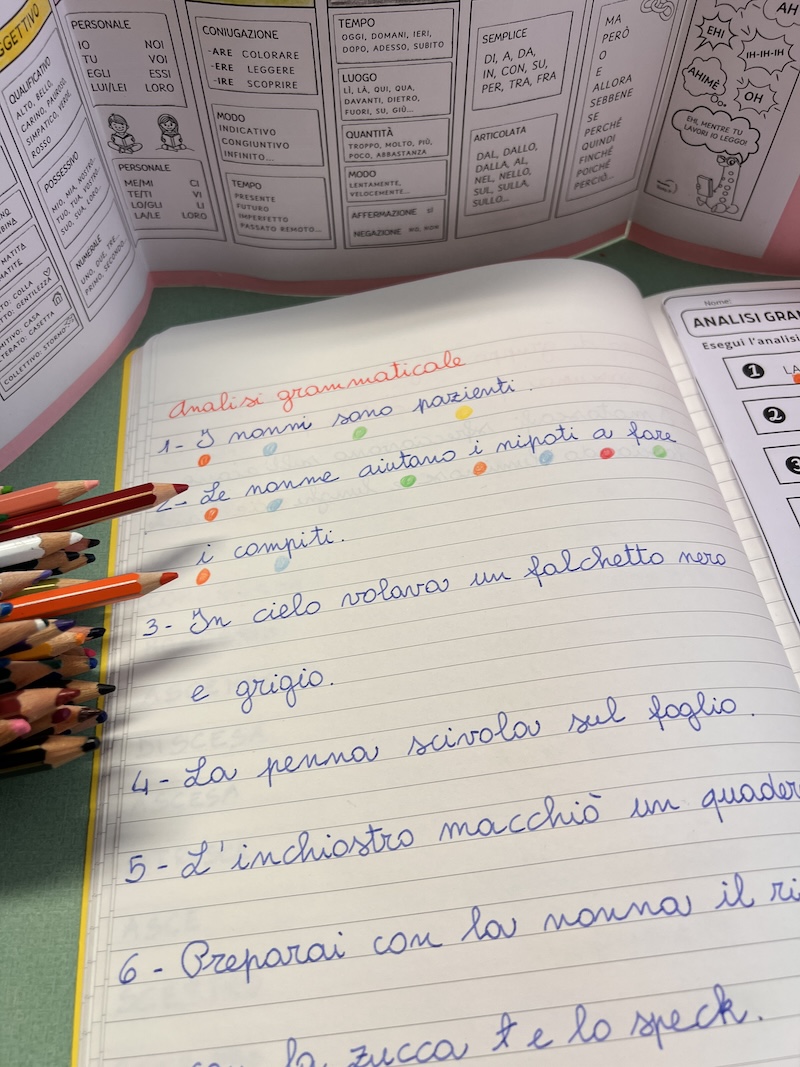 GGETTIVO
QUALIFICATIVO
ALTO, BELLO,
CARINO, PAUROSO,
SIMPATICO, VERDE,
ROSSO
POSSESSIVO
MIO, MIA, NOSTRO,
TUO, TUA, VOSTRO,
SUO, SUA, LORO...
NUMERALE
UNO, DUE, TRE...
PRIMO, SECONDO...
MATITA
MATITE
COLLA
GENTILEZZA
CASA
CASETTA
COLLETTIVO: STORMO
PERSONALE
IO NOI
TU VOI
EGLI ESSI
LUI/LEI LORO
PERSONALE
ME/MI CI
TE/TI VI
LO/GLI LI
LA/LE LORO
CONIUGAZIONE
-ARE COLORARE
-ERE LEGGERE
-IRE SCOPRIRE
MODO
INDICATIVO
CONGIUNTIVO
INFINITO...
TEMPO
PRESENTE
FUTURO
IMPERFETTO
PASSATO REMOTO...
TEMPO
OGGI, DOMANI, IERI,
DOPO, ADESSO, SUBITO
LUOGO
LÌ, LÀ, QUI, QUA,
DAVANTI, DIETRO,
FUORI, SU, GIÙ...
QUANTITÀ
TROPPO, MOLTO, PIÙ,
POCO, ABBASTANZA
MODO
LENTAMENTE,
VELOCEMENTE...
AFFERMAZIONE SÌ
NEGAZIONE NO, NON
SEMPLICE
DI, A, DA,
IN, CON, SU,
PER, TRA, FRA
ARTICOLATA
DAL, DALLO,
DALLA, AL,
NEL, NELLO,
SUL, SULLA,
SULLO...
MA
PERÒ
O
E
ALLORA
SEBBENE
SE
PERCHÉ
QUINDI
FINCHÉ
POICHÉ
PERCIÒ...
AH
EHI
IH-IH-IH
AHIMÈ
OH
EHI, MENTRE TU
LAVORI IO LEGGO!
Analisi grammaticale
1- I nonni sono pazienti.
2- Le nonne aiutano i nipoti a fare
i compiti.
3- In cielo volava un falchetto nero
e grigio.
4- La penna scivola sul foglio.
5- L'inchiostro macchiò un quader
6- Preparai con la nonna il ri
la zucca e lo speck.
Nome:
ANALISI GRA
Esegui l'analisi
1 LA
2
3